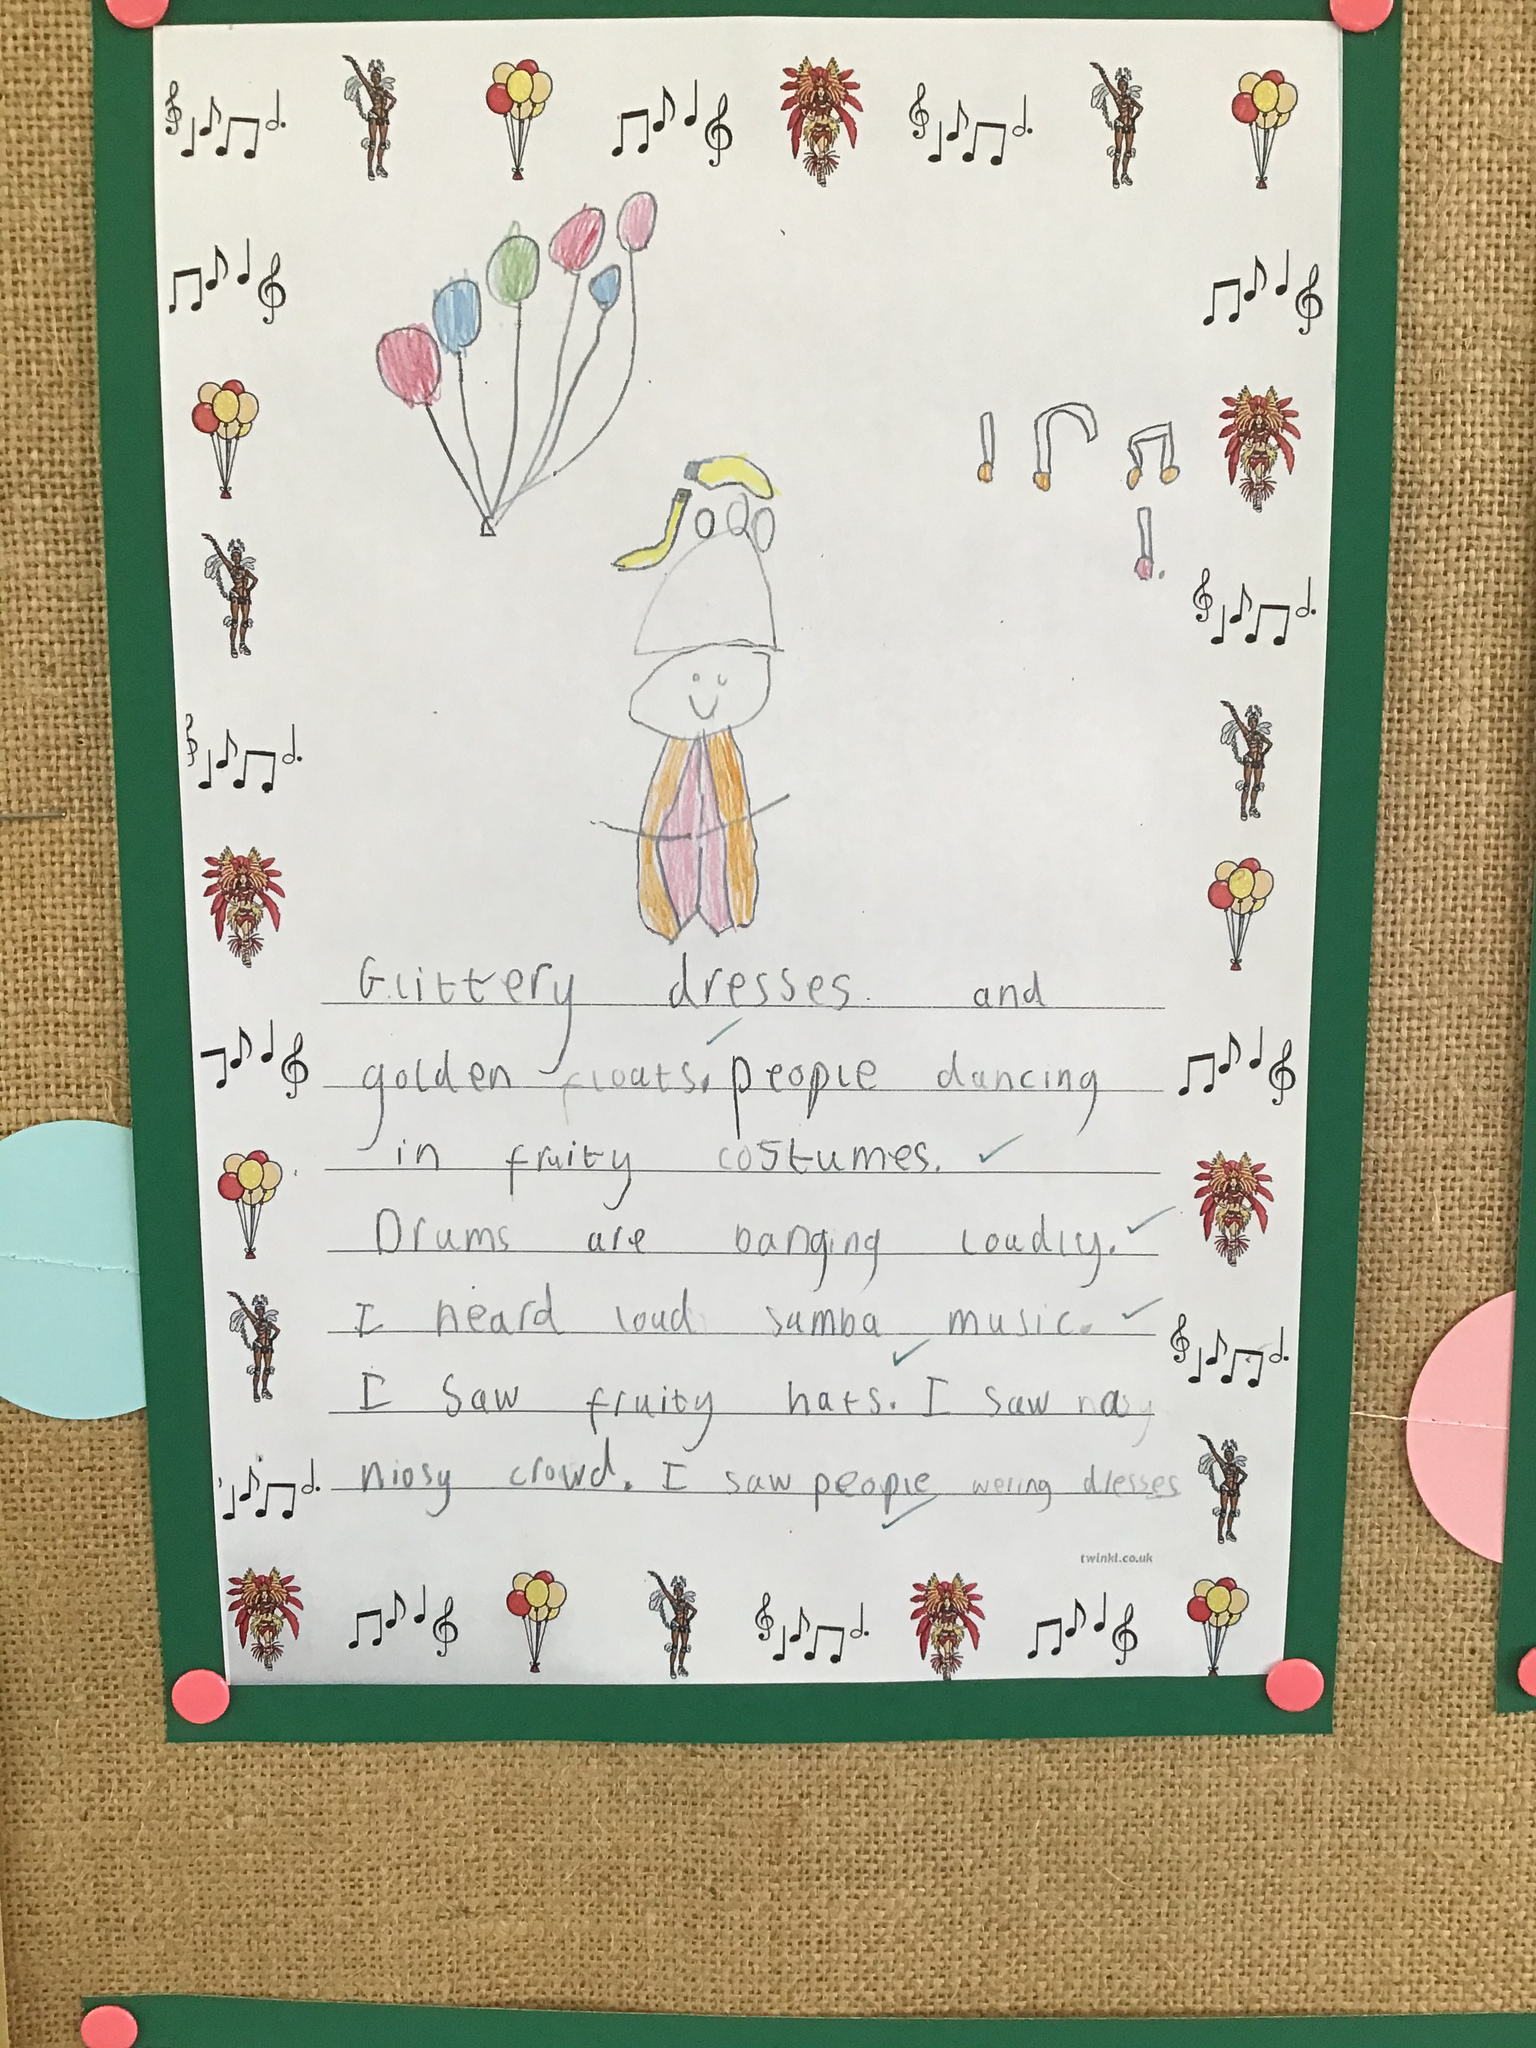 Glittery dresses and
golden floats. people dancing
in fruity costumes.
Drums are banging loudly.
I heard loud samba music.
I saw fruity hats. I saw
niosy crowd. I saw people wering dresses
twinkl.co.uk